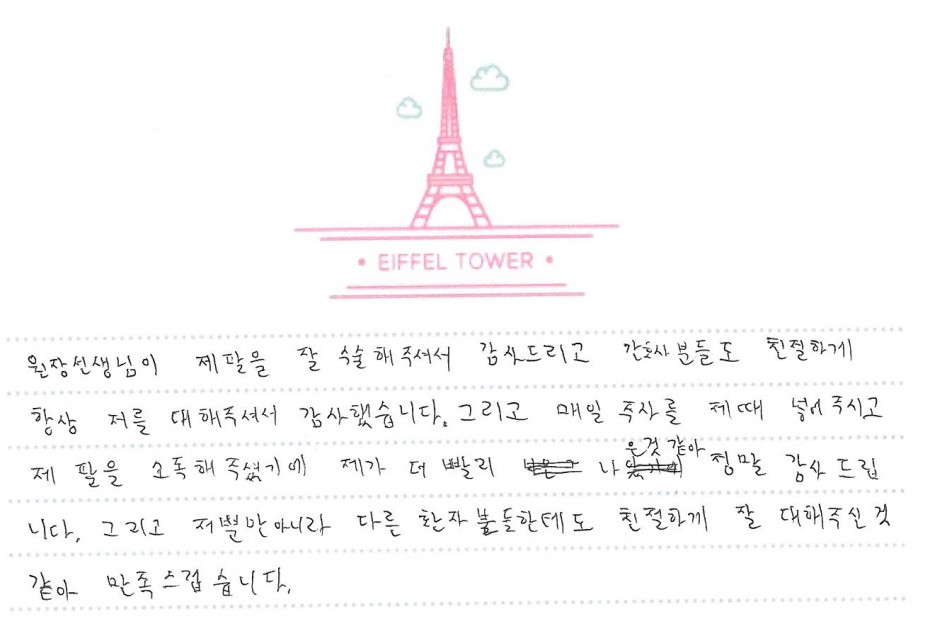 • EIFFEL TOWER •
원장선생님이 제팔을 잘 수술해주셔서 감사드리고 간호사분들도 친절하게
항상 저를 대해주셔서 감사했습니다. 그리고 매일 주사를 제때 넣어주시고
은것 같아
제 팔을 소독해주셨기에 제가 더 빨리 나 정말 감사드립
니다. 그리고 저뿐만아니라 다른 환자분들한테도 친절하게 잘 대해주신것
같아 만족스럽습니다.